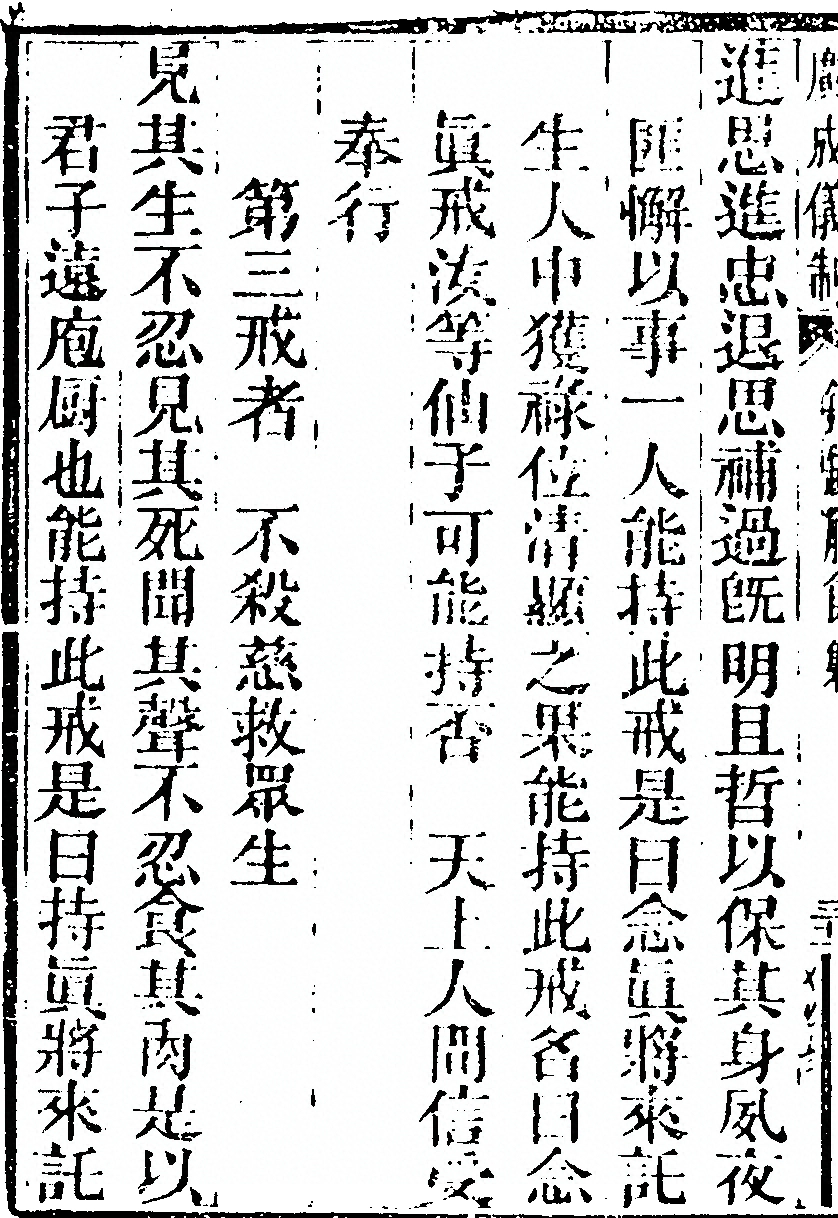 進思進忠退思補過旣明且哲以保其身夙夜
匪懈以事一人能持此戒是曰念眞將來託
生人中獲祿位淸顯之果能持此戒名曰念
眞戒汝等仙子可能持否　天上人間信受
奉行
第三戒者　不殺慈救眾生
見其生不忍見其死聞其聲不忍食其肉是以
君子遠庖厨也能持此戒是曰持眞將來託